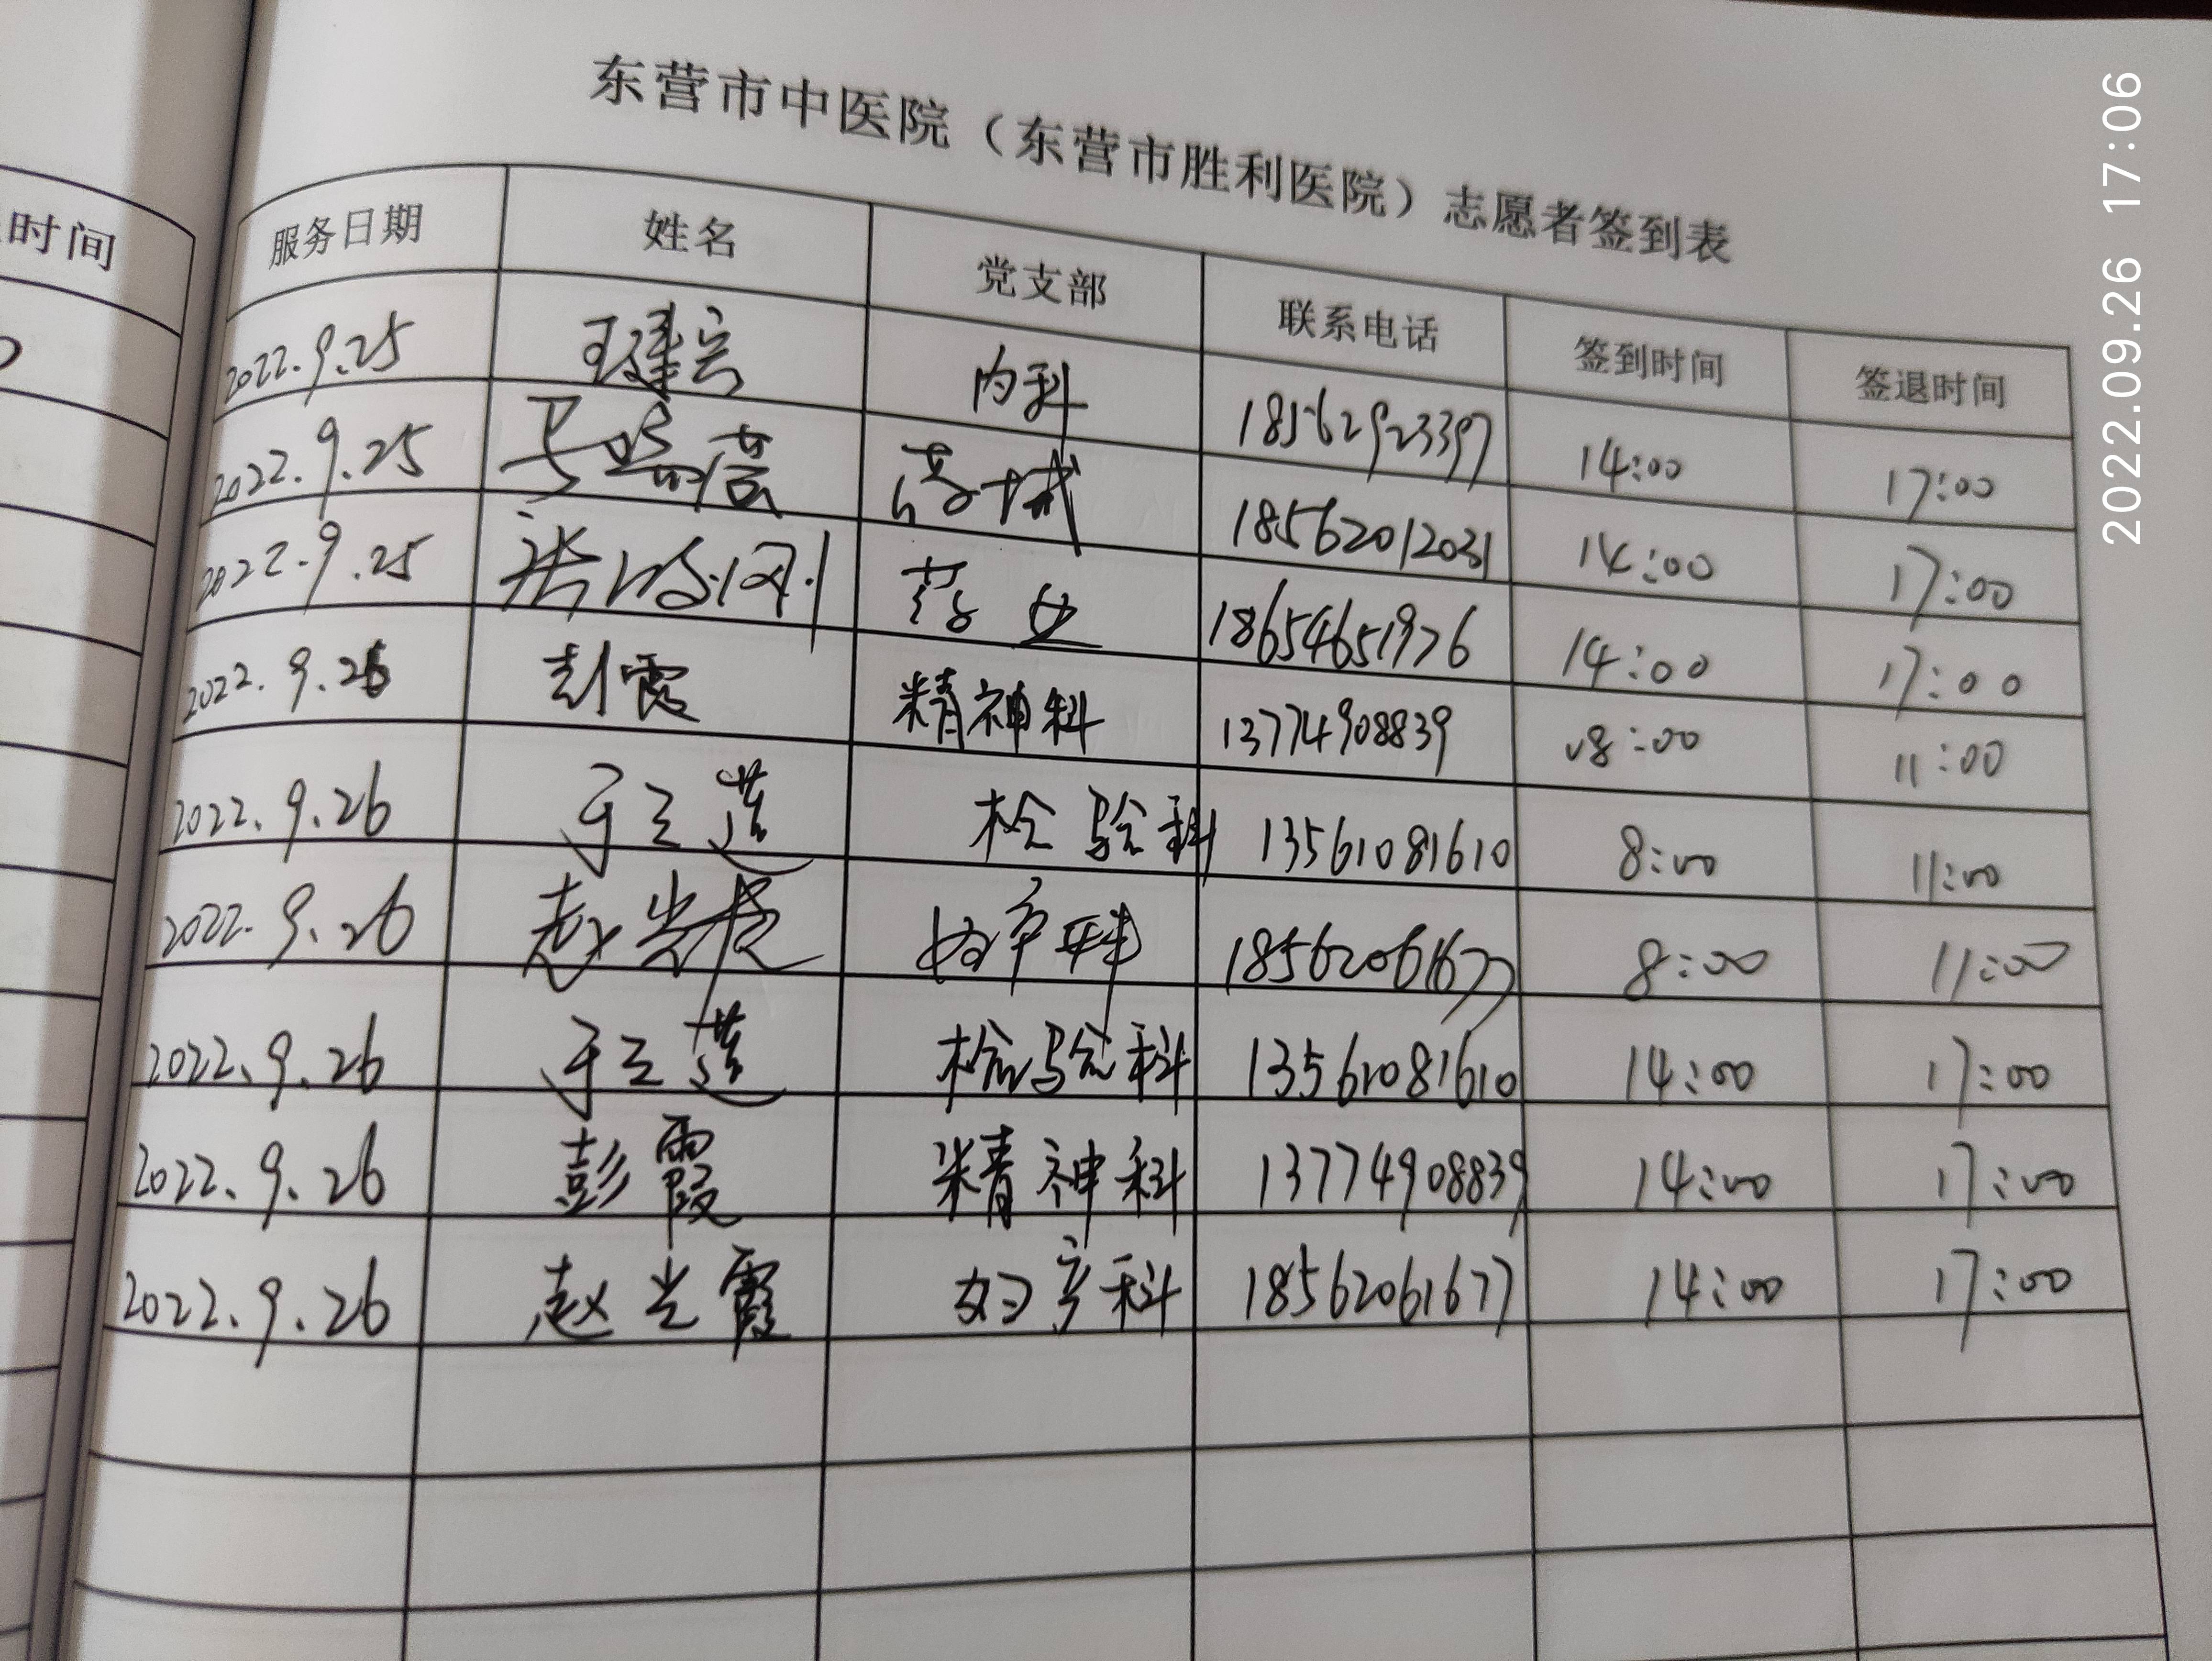 时间
东营市中医院（东营市胜利医院）志愿者签到表
2022.09.26 17:06
服务日期 姓名 党支部 联系电话 签到时间 签退时间
2022.9.25 王建宾 内科 18562923397 14:00 17:00
2022.9.25 18562012031 14:00 17:00
2022.9.25 18654651976 14:00 17:00
2022.9.26 彭霞 精神科 13774908839 08:00 11:00
2022.9.26 于立莲 检验科 13561081610 8:00 11:00
2022.9.26 赵光霞 妇产科 18562061677 8:00 11:00
2022.9.26 于立莲 检验科 13561081610 14:00 17:00
2022.9.26 彭霞 精神科 13774908839 14:00 17:00
2022.9.26 赵光霞 妇产科 18562061677 14:00 17:00